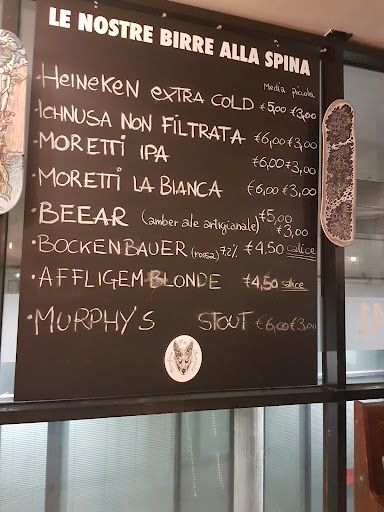 LE NOSTRE BIRRE ALLA SPINA
Media piccola
• HEINEKEN EXTRA COLD €5,00 €3,00
• ICHNUSA NON FILTRATA €6,00 €3,00
• MORETTI IPA €6,00 €3,00
• MORETTI LA BIANCA €6,00 €3,00
• BEEAR (amber ale artigianale) €5,00 €3,00
• BOCKENBAUER (rossa) 7,2% €4,50 calice
• AFFLIGEM BLONDE €4,50 calice
• MURPHY'S STOUT €6,00 €3,00